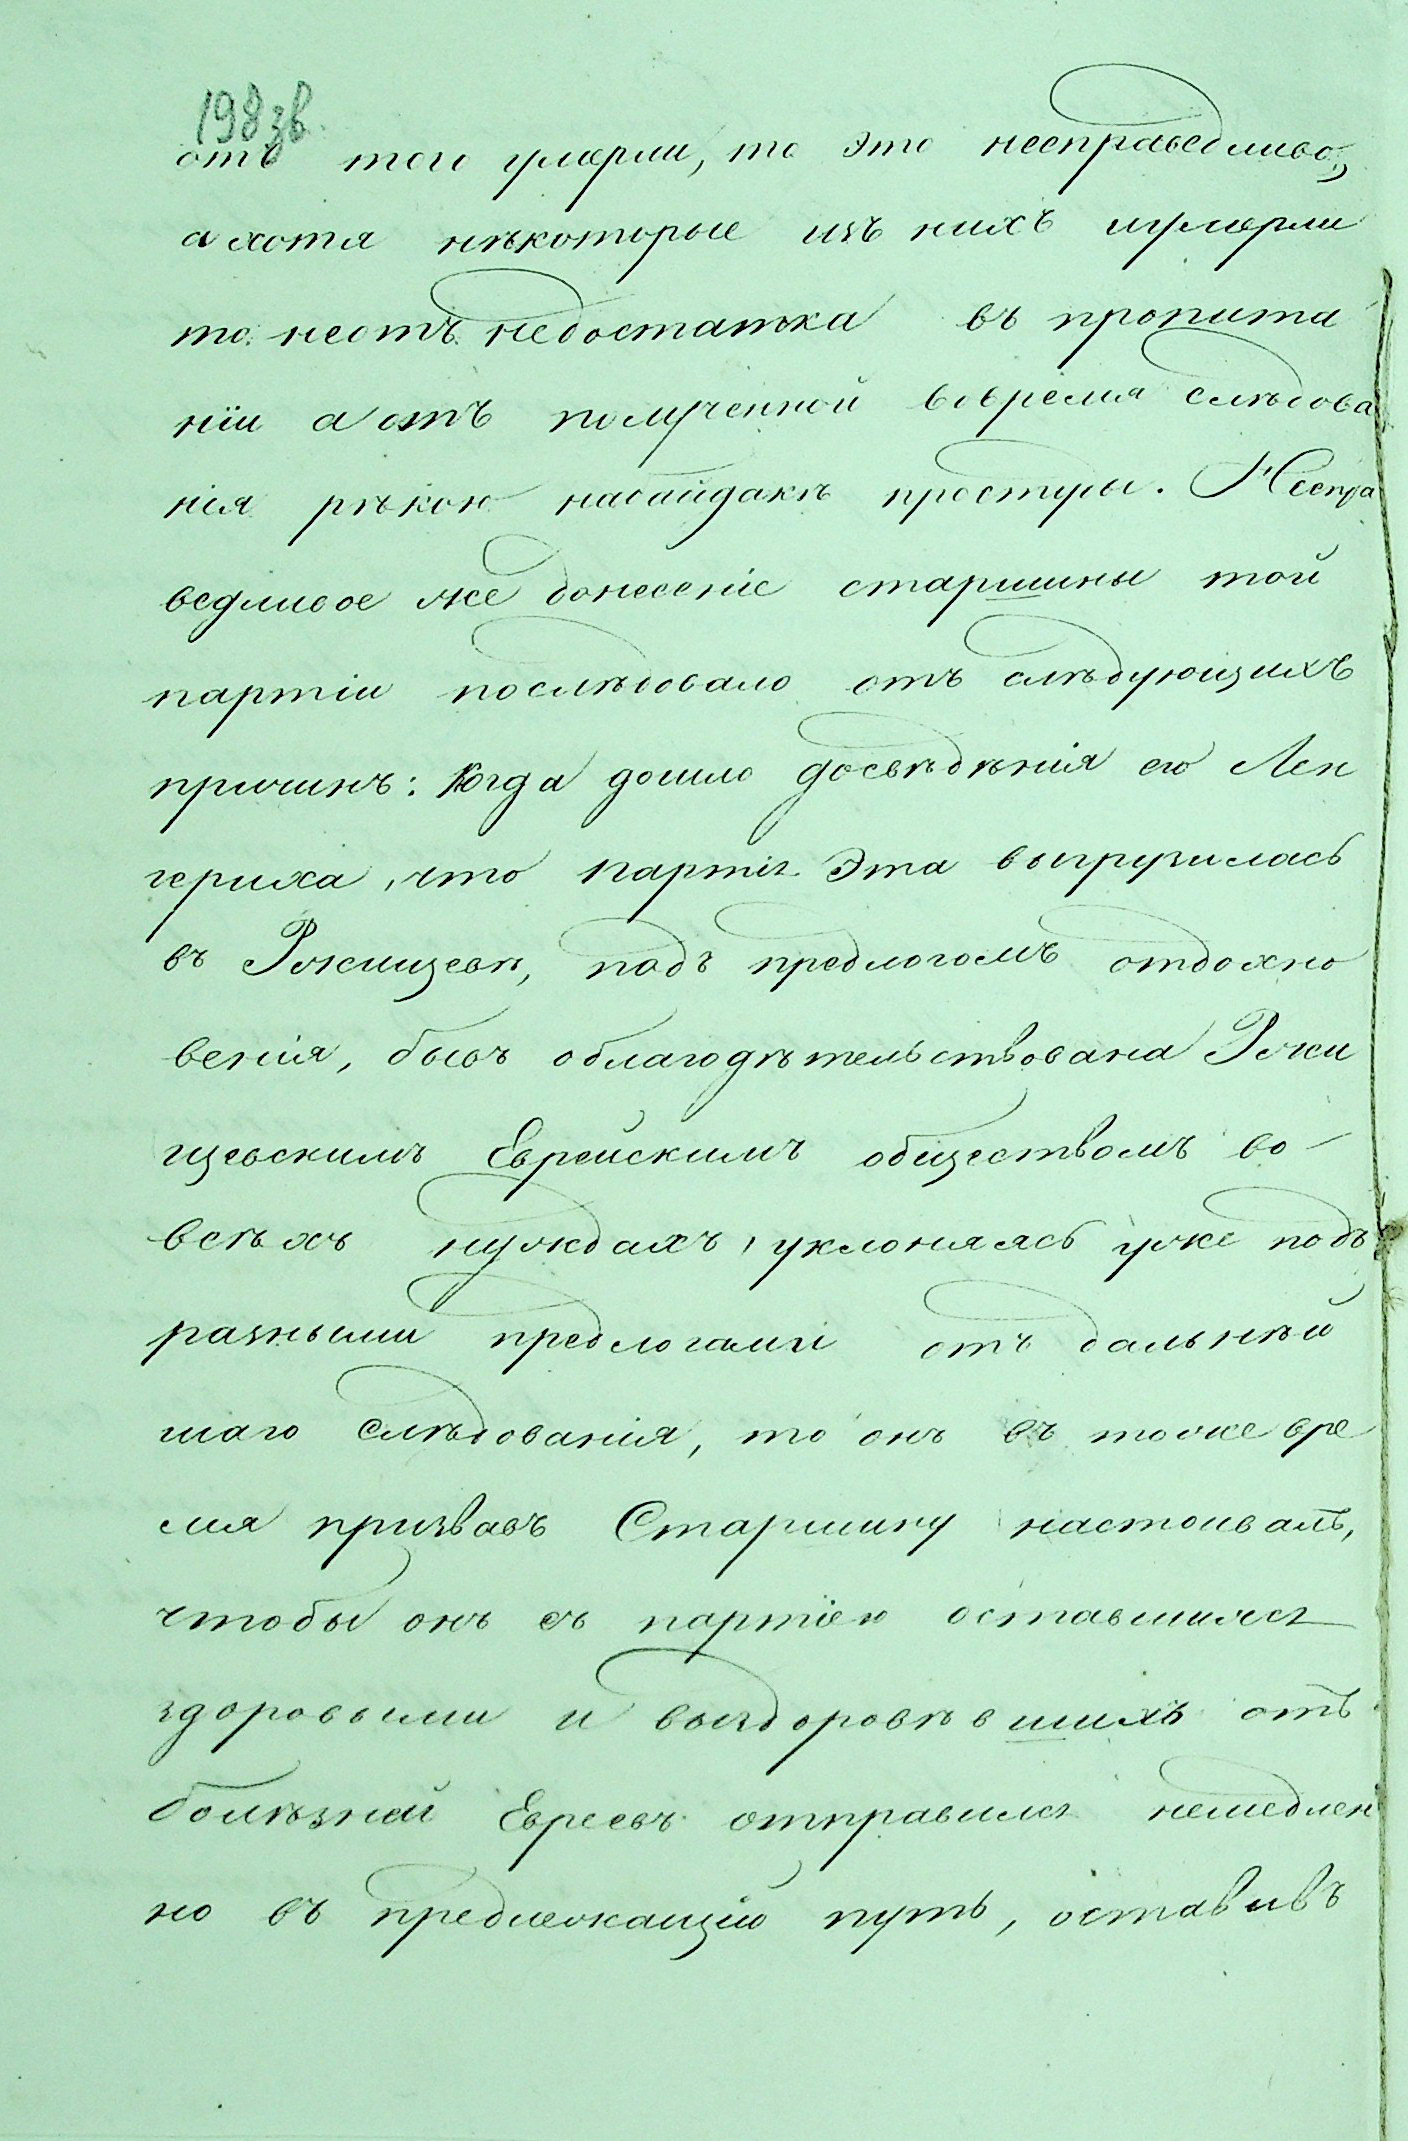 198 зв.
отъ того умерли, то это несправедливо;
а хотя нѣкоторые изъ нихъ и умерли
то неотъ недостатка въ пропита
нiи а отъ полученной вовремя слѣдова
нiя рѣкою набайдакѣ простуды. Неспра
ведливое же донесенiе старшины той
партiи послѣдовало отъ слѣдующихъ
причинъ: Когда дошло досвѣдѣнiя его Лен
гериха, что партiя эта выгрузилась
въ Ржищевѣ, подъ предлогомъ отдохно
венiя, бывъ облагодѣтельствована Ржи
щевскимъ Еврейскимъ обществомъ во
всѣхъ нуждахъ, уклонялась уже подъ
разными предлогами отъ дальнѣй
шаго слѣдованiя, то онъ въ тоже вре
мя призвавъ Старшину настоивалъ,
чтобы онъ съ партiею оставшихся
здоровыми и выздоровѣвшихъ отъ
болѣзней Евреевъ отправился немедлен
но въ предлежащiй путь, оставивъ